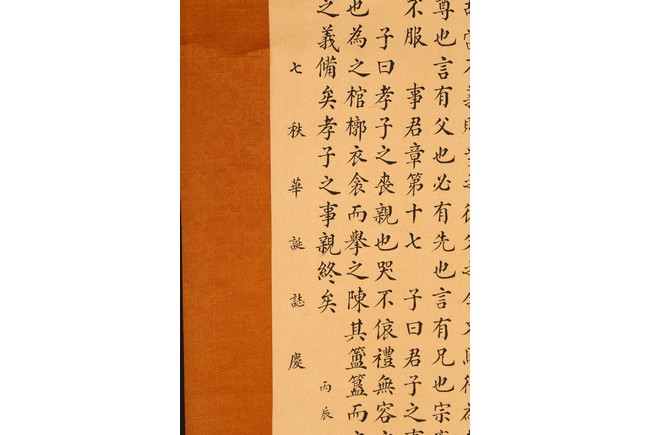 尊也言有父也必有先也言有兄也宗
不服 事君章第十七 子曰君子之事
子曰孝子之喪親也哭不偯禮無容
也為之棺槨衣衾而舉之陳其簠簋而
之義備矣孝子之事親終矣
七秩華誕誌慶 丙辰